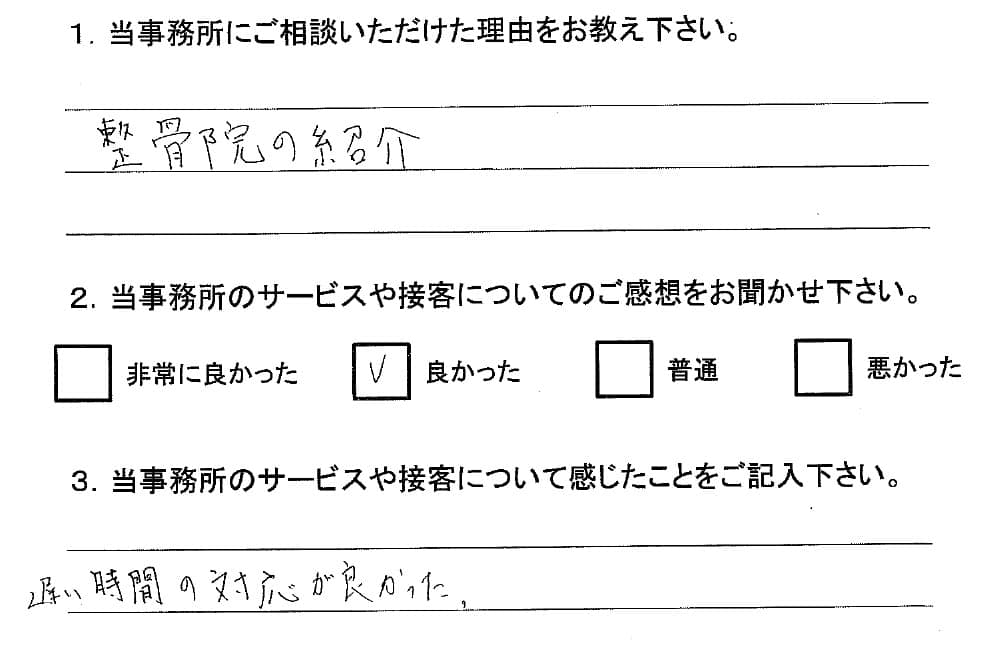 1. 当事務所にご相談いただけた理由をお教え下さい。
整骨院の紹介
2. 当事務所のサービスや接客についてのご感想をお聞かせ下さい。
非常に良かった ✓ 良かった 普通 悪かった
3. 当事務所のサービスや接客について感じたことをご記入下さい。
遅い時間の対応が良かった、